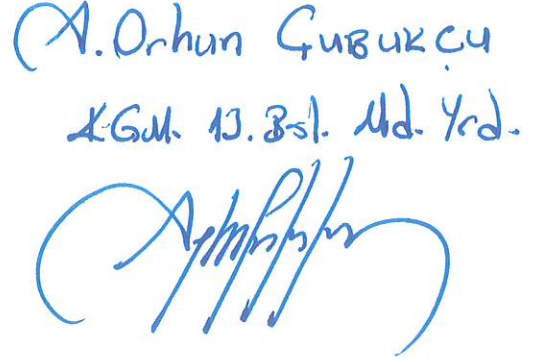 A. Orhun Çubukçu
KGM. 13. Böl. Md. Yrd.